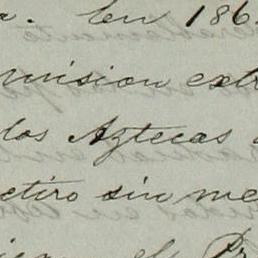 En 186
mision extr
los Aztecas
etiro sin me